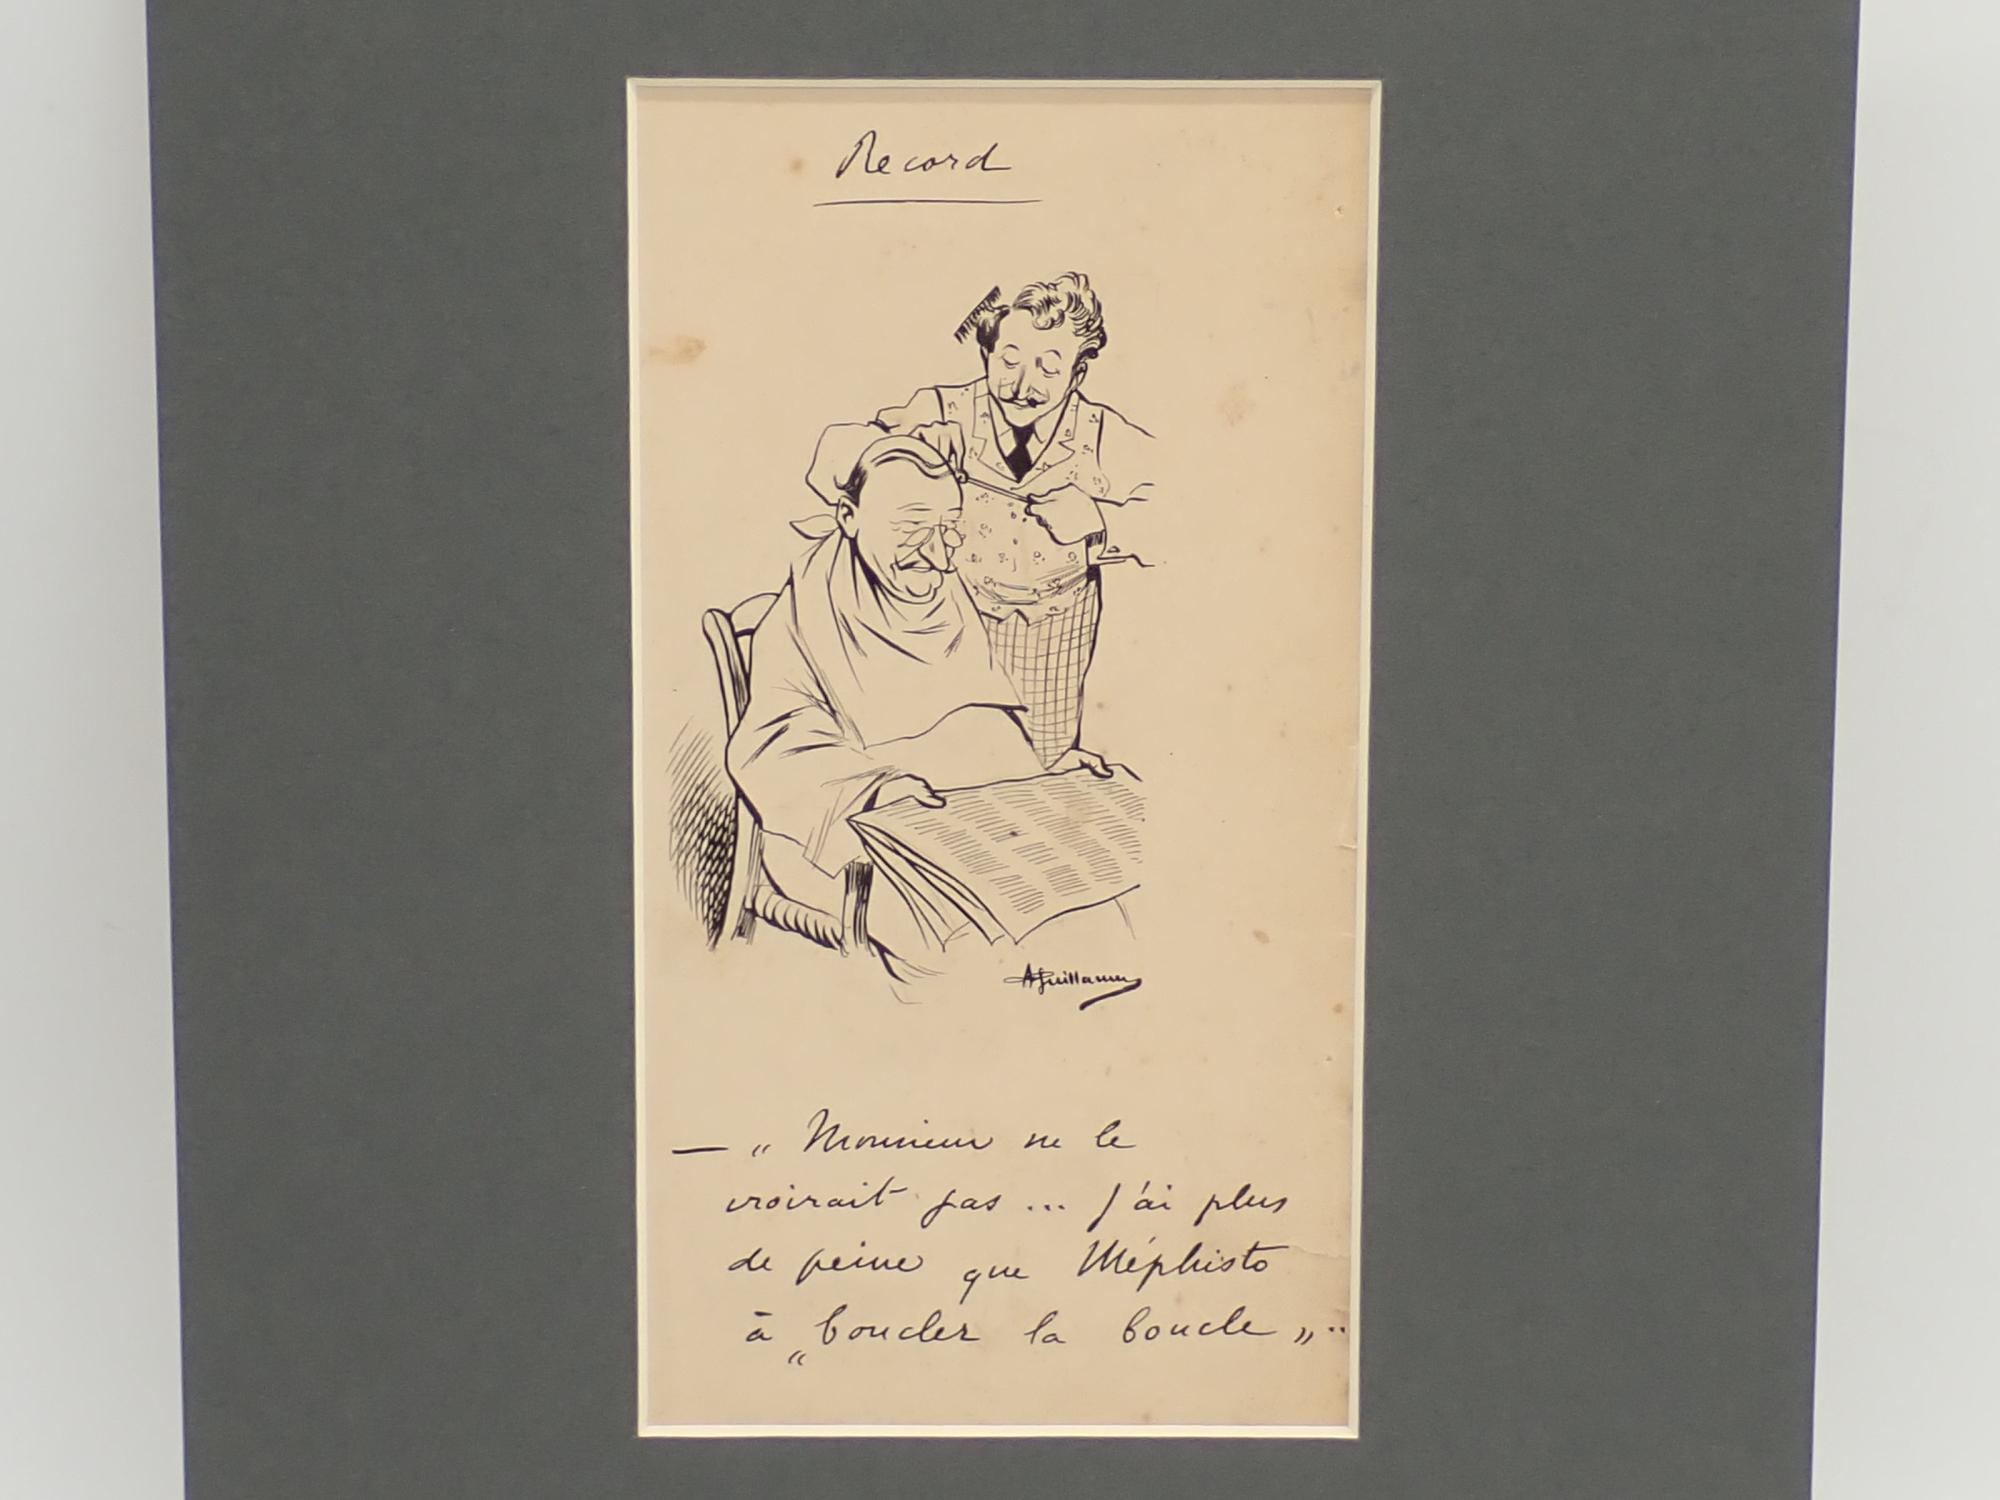 Record
A Guillaume
— " Monsieur ne le
croirait pas ... J'ai plus
de peine que Méphisto
à "boucler la boucle"..